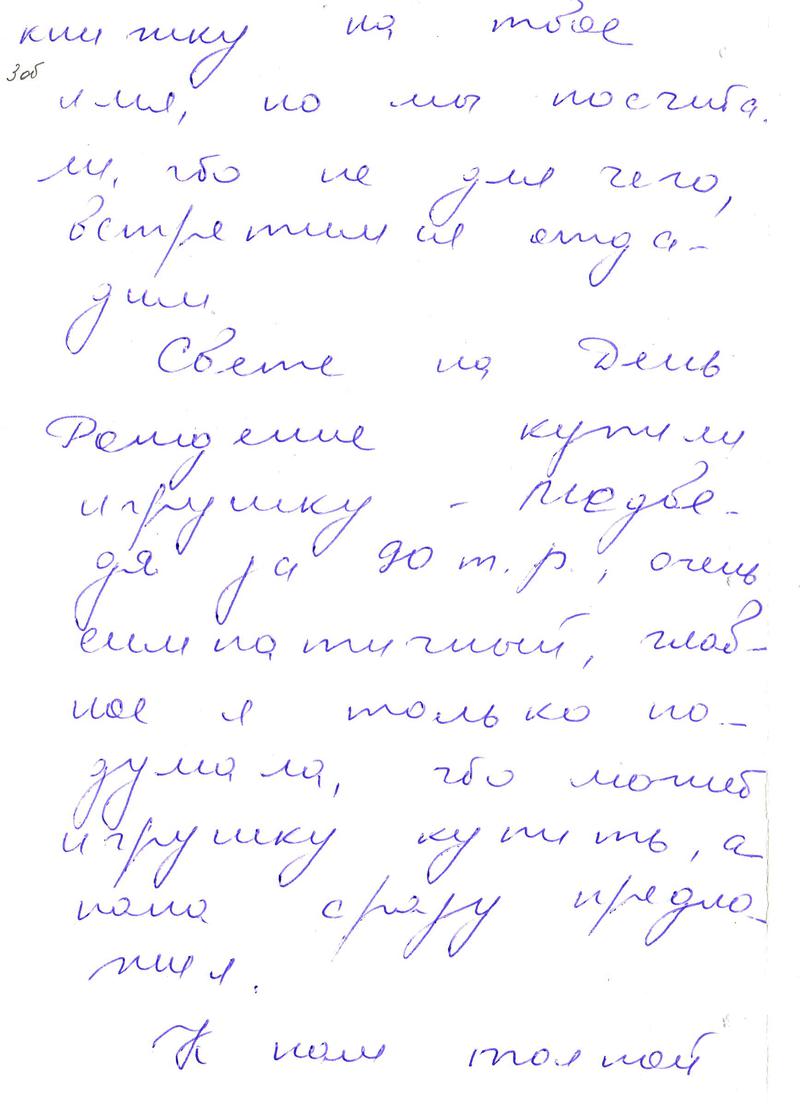 книжку на твое
3 об
имя, но мы посчита-
ли, что не для чего,
встретимся отда-
дим
Свете на День
Рождение купили
игрушку - медве-
дя за 90 т.р., очень
симпатичный, глав-
ное я только по-
думала, что может
игрушку купить, а
папа сразу предло-
жил.
К нам толпой